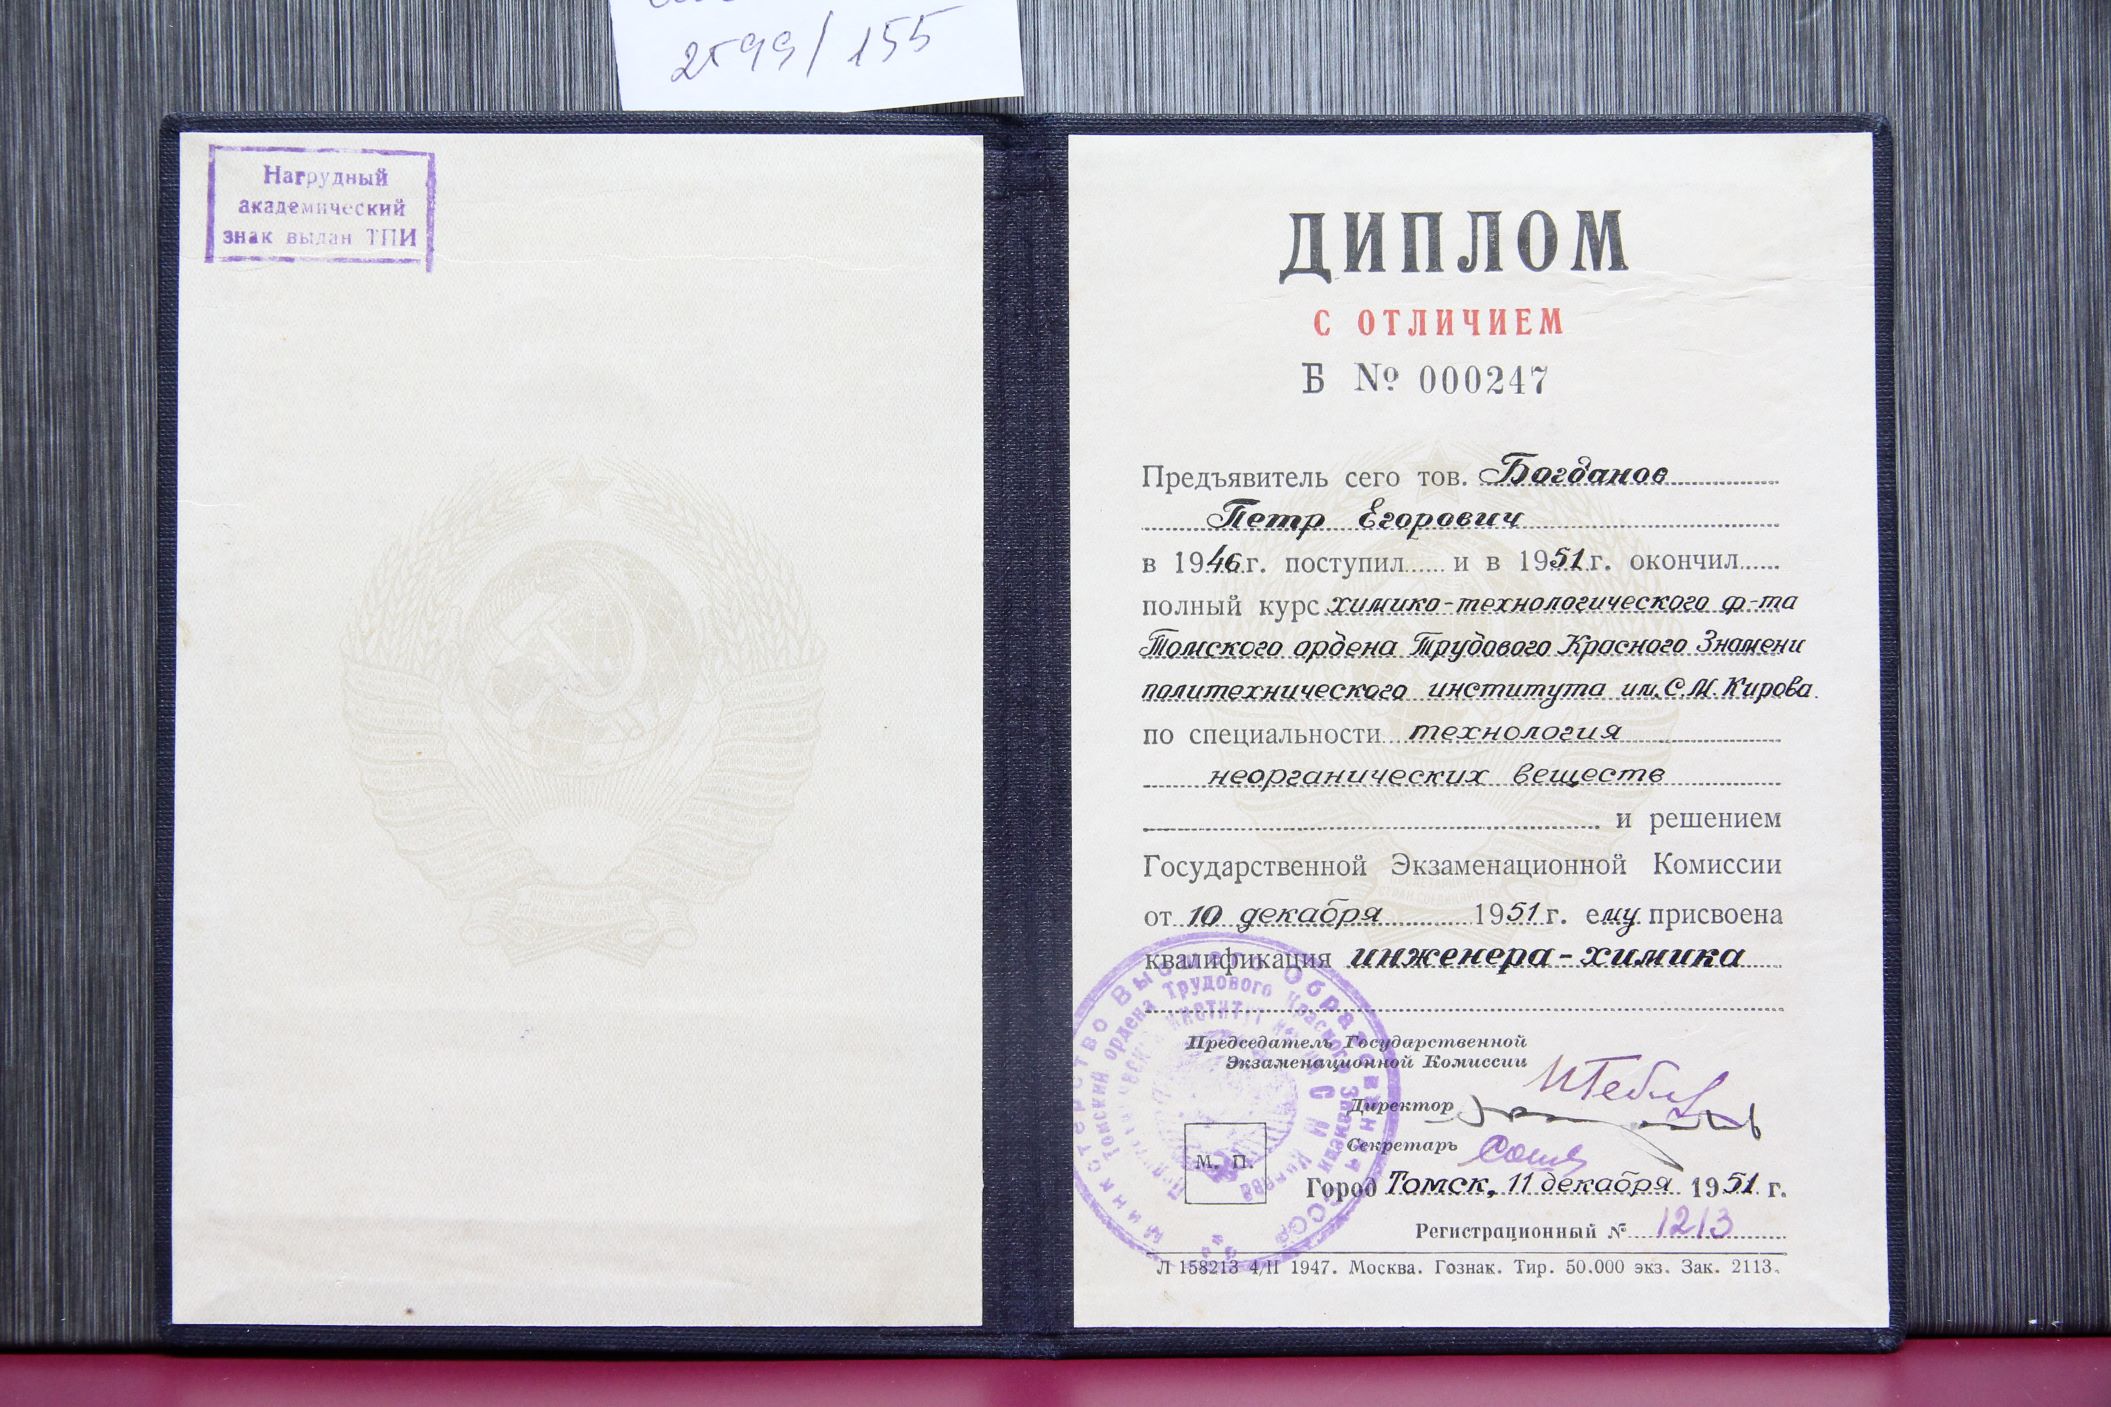 2599/155
Нагрудный
академический
знак выдан ТПИ
ДИПЛОМ
С ОТЛИЧИЕМ
Б № 000247
Предъявитель сего тов. Богданов
Петр Егорович
в 1946 г. поступил и в 1951 г. окончил
полный курс химико-технологического ф-та
Томского ордена Трудового Красного Знамени
политехнического института им. С.М. Кирова
по специальности технология
неорганических веществ
и решением
Государственной Экзаменационной Комиссии
от 10 декабря 1951 г. ему присвоена
квалификация инженера-химика
Председатель Государственной
Экзаменационной Комиссии
Директор
Секретарь
М. П.
Город Томск, 11 декабря 1951 г.
Регистрационный № 1213
Л 158213 4/II 1947. Москва. Гознак. Тир. 50.000 экз. Зак. 2113.
Министерство Высшего Образования СССР
Томский ордена Трудового Красного Знамени
Политехнический институт имени С М Кирова